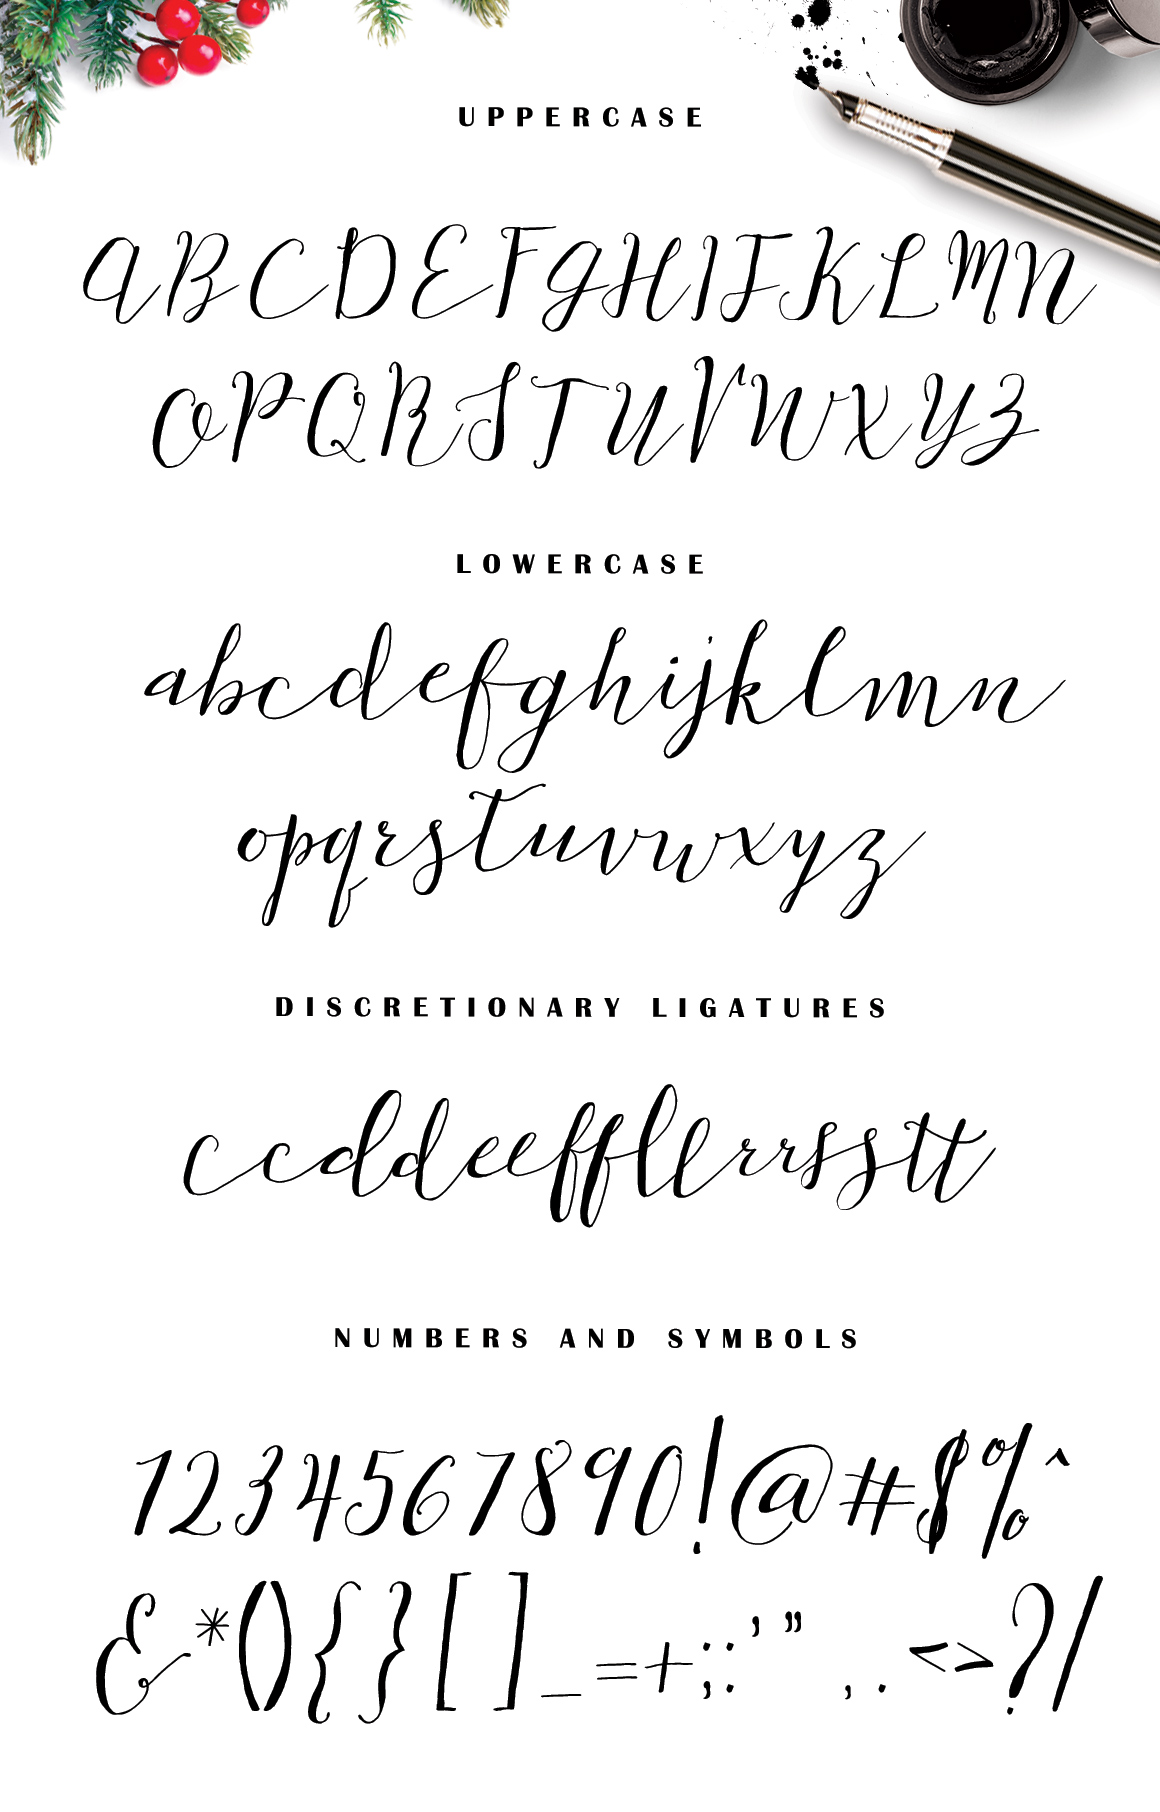 UPPERCASE
ABCDEFGHIJKLMN
OPQRSTUVWXYZ
LOWERCASE
abcdefghijklmn
opqrstuvwxyz
DISCRETIONARY LIGATURES
ccddeeffllrrsstt
NUMBERS AND SYMBOLS
1234567890!@#$%^
&*(){}[]_=+;:'",.<>?/